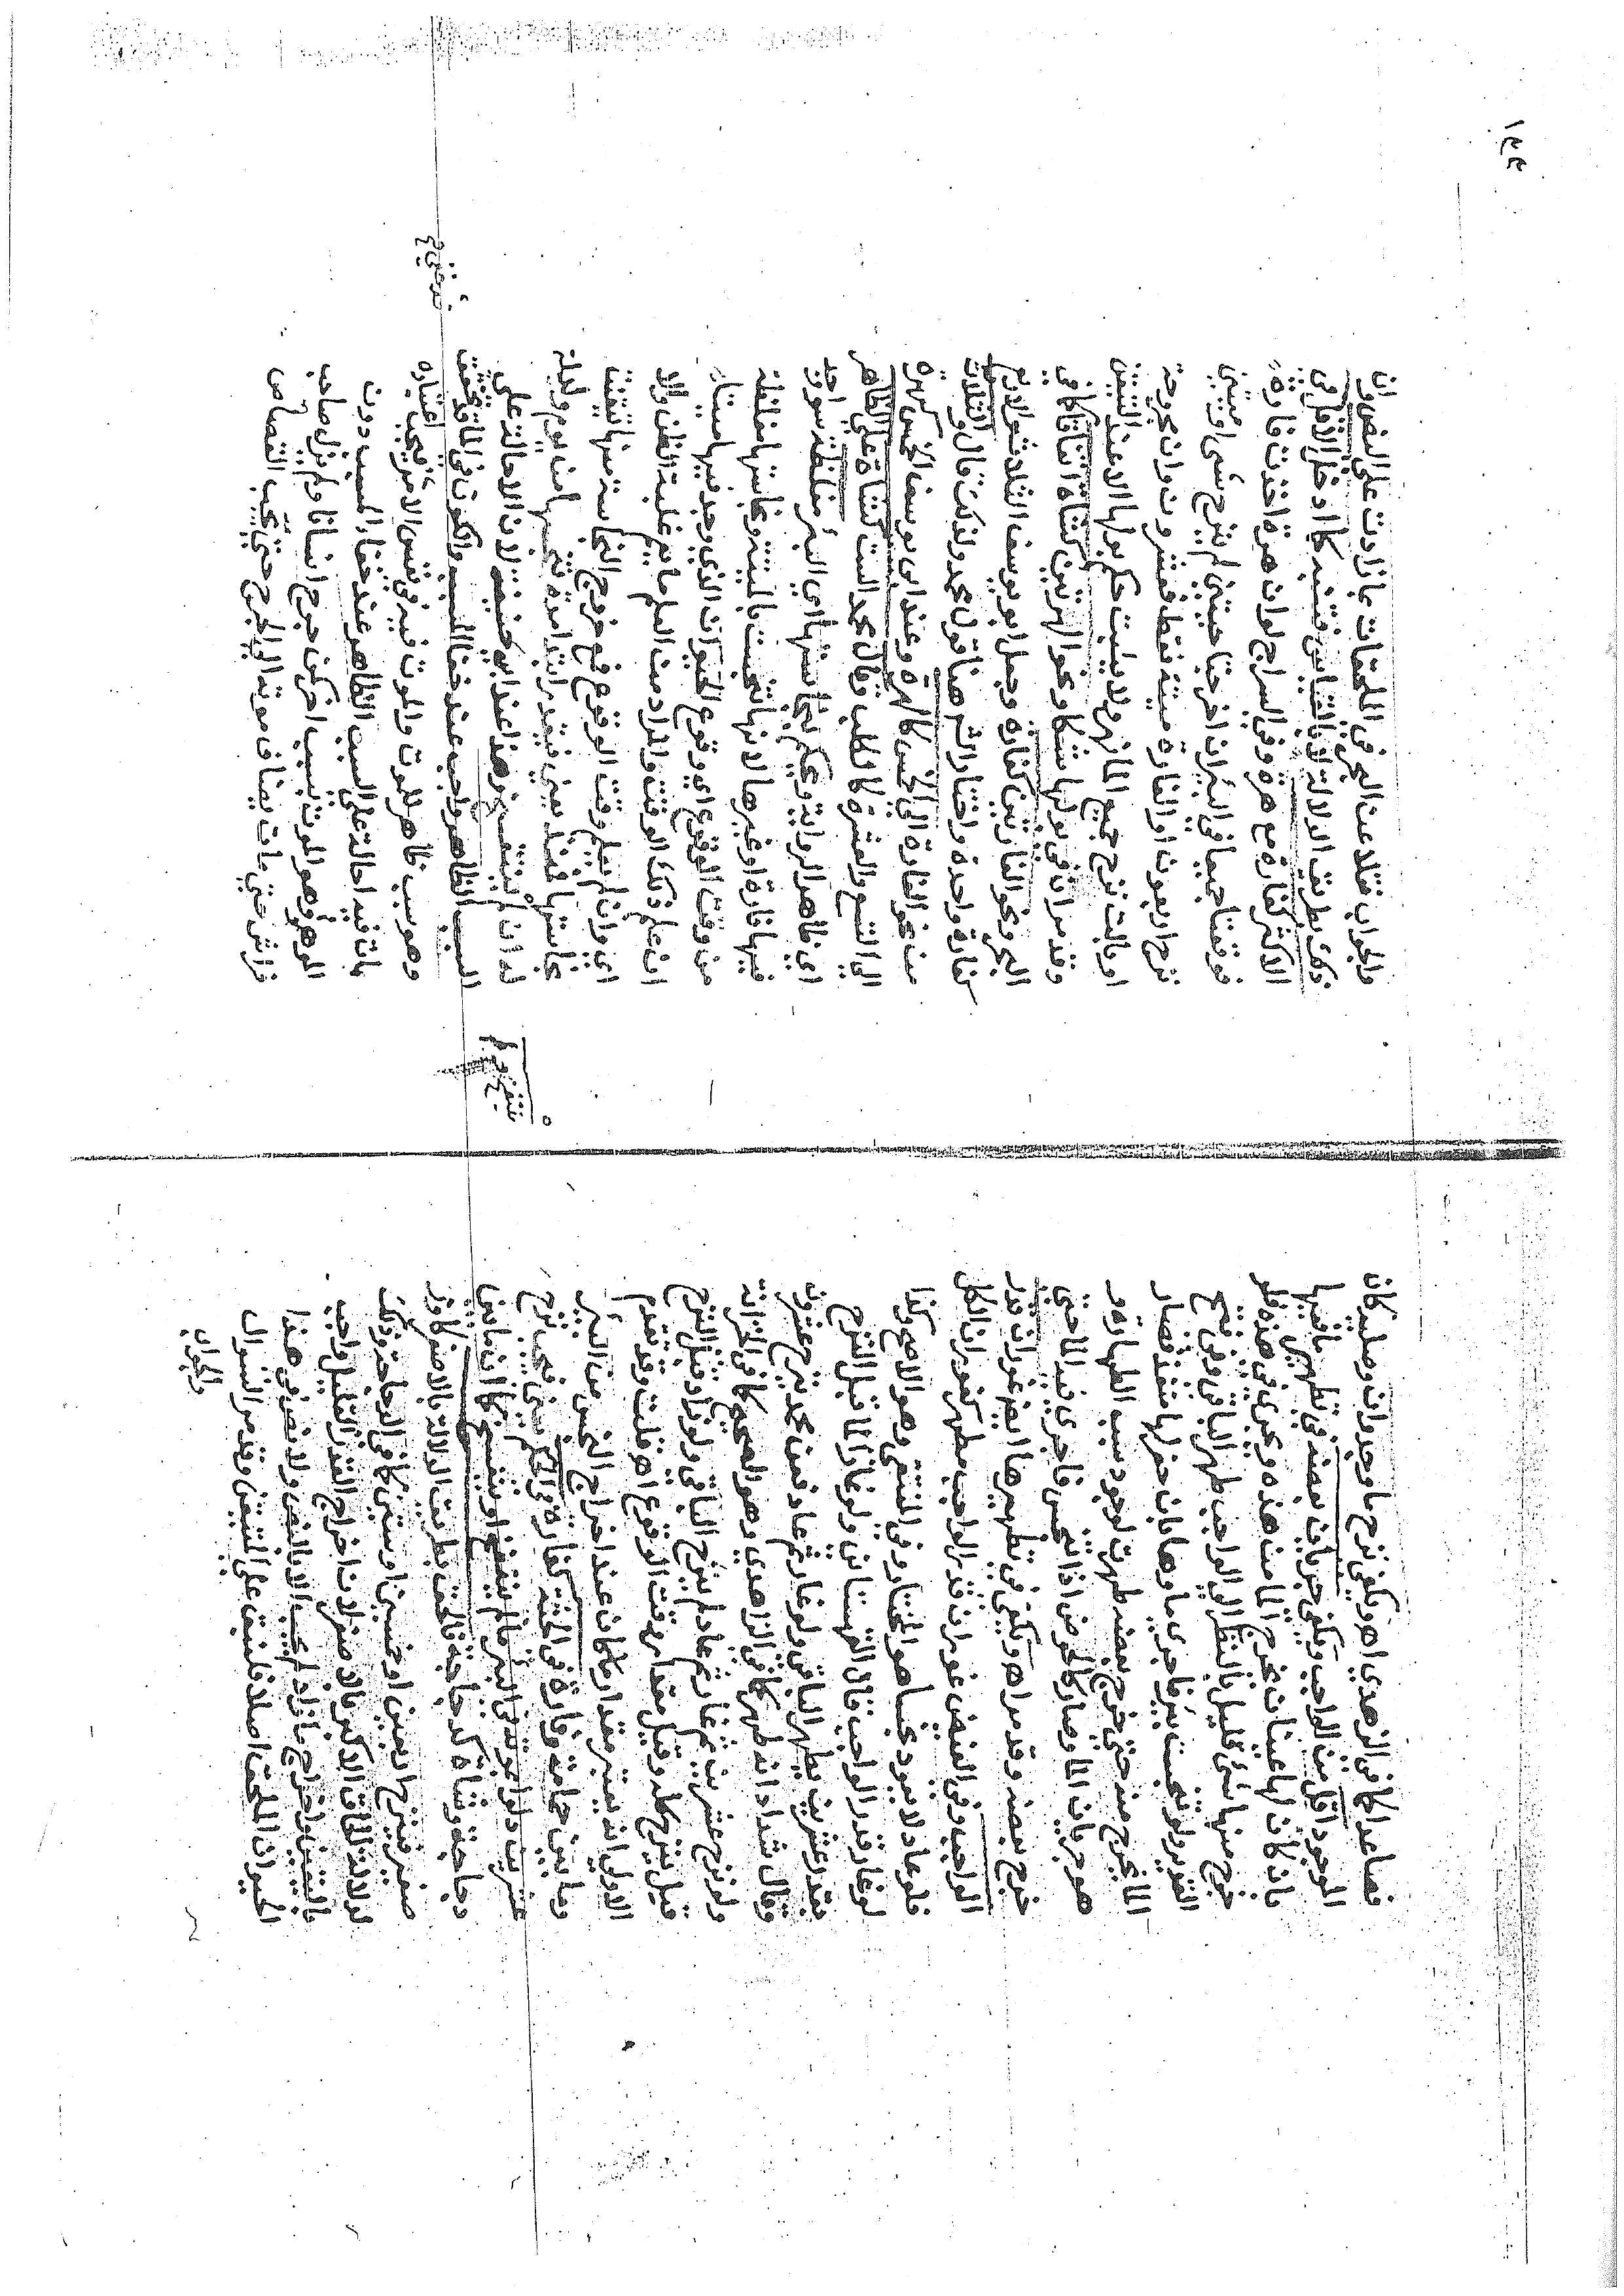 فصاعدا كما في الزاهدي اهـ ويكفي نزح ما وجد وان وصلية كان
الموجود اقل من الواجب ويكفي جريان بعضه في تطهير باقيها
بان كان لها عينان يخرج الماء من هذه ويجري في هذه فلو
خرج منها شئ قليل بالنظر الى الواجب طهر الباقي وفي فتح
القدير ولو تنجست بئر فاجرى ماؤها بان حفر لها منفذ فصار
الماء يخرج منه حتى خرج بعضه طهرت لوجود سبب الطهارة وهو
هو جريان الماء وصار كالحوض اذا تنجس فاجرى فيه الماء حتى
خرج بعضه وقد مر اهـ ويكفي في تطهيرها ايضا غوران قدر
الواجب وفي الفيض غوران قدر الواجب مطهر كغوران الكل
فلو عاد لا يعود نجسا هو المختار وفي المنتقى وهو الاصح وكذا
لو غار قدر الواجب قال القهستاني ولو غار الماء قبل النزح
بقدر عشرين يطهر الباقي ولو غار ثم عاد فعن محمد ينزح عشرون
وقال شداد انه طهر كما في الزاهدي وهو الصحيح كما في الخزانة
ولو نزح عشرين ثم غار ثم عاد لم ينزح الباقي ولو زاد قبل النزح
قيل ينزح كله وقيل مقدار وقت الوقوع اهـ قلت وقد تقدم
الاول انه يعتبر مقدار ما كان عند اخراج النجس من البئر
وما بين حمامة وفارة في الجثة كفارة في الحكم يعني فيجب نزح
عشرين دلوا بموته في البئر ما لم ينتفخ او يتفسخ كما ان ما بين
دجاجة وشاة كدجاجة فالحق بطريق الدلالة بالاصغر
فينزح اربعين او خمسين او ستين كما في الدجاجة وذلك
الاكبر بالاصغر لان اخراج القدر القليل واجب
باليقين واخراج ما زاد لم يجب الا بالنص ولا نص في هذا
الحيوان الملحق اصلا على المتيقن وقد مر السؤال
والجواب
١٤٤
والجواب نقلا عن البحر في الملحقات بما زادت على النص وان
ذلك بطريق الدلالة لا بالقياس فتنبه كما ادخل الاقل في
الاكثر كفارة مع هرة وفي السراج لو ان هرة اخذت فارة
فوقعتا جميعا في البئر ان اخرجتا حيتين لم ينزح شئ او ميتين
نزح اربعون او الفارة ميتة فقط فعشرون وان مجروحة
او بالت نزح جميع الماء
وقد مر ان في بولها شكا ونحو الهرتين كشاة اتفاقا كما في
البحر ونحو الفارتين كفارة وجعل ابو يوسف الثلاث والاربع
كفارة واحدة واختار الشرح هنا قول محمد ولذلك قال والثلاث
من نحو الفارة الى الخمس كالهرة وعند ابي يوسف الخمس كهرة
الى التسع والعشرة كالكلب وقال محمد الست كشاة على الظاهر
اي ظاهر الرواية ويحكم بنجاستها اي البئر مغلظة سواء وجد
فيها فارة او غيرها لانها تنجست بالميتة ونجاستها مغلظة
من وقت الوقوع اي وقوع الحيوان الذي وجد فيها ميتا
ان علم ذلك الوقت والمراد من العلم ما يعم غلبة الظن والا
اي وان لم يعلم وقت الوقوع مع خروج النجاسة منها تيقنت
نجاستها يعني فيقدر ابتداء مدة تنجسها من يوم وليلة
له ان لم ينتفخ وهذا عند ابي حنيفة لان الاحالة على
السبب الظاهر واجب عند خفاء المسبب والكون في الماء قد تحقق
وهو سبب ظاهر للموت والموت فيه في نفس الامر فيجب اعتباره
احالة على السبب الظاهر عند خفاء المسبب دون
الموهوم وهو الموت بسبب اخر كمن جرح انسانا ولم يزل صاحب
فراش حتى مات يضاف موته الى الجرح حتى يجب القصاص